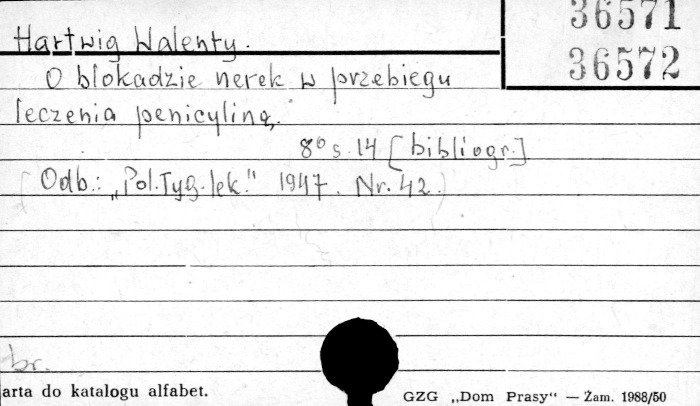 36571
Hartwig Walenty.
36572
O blokadzie nerek w przebiegu
leczenia penicyliną.
8° s. 14 [bibliogr.]
(Odb.: „Pol.Tyg.lek." 1947. Nr. 42.)
br.
arta do katalogu alfabet.
GZG „Dom Prasy" — Zam. 1988/50